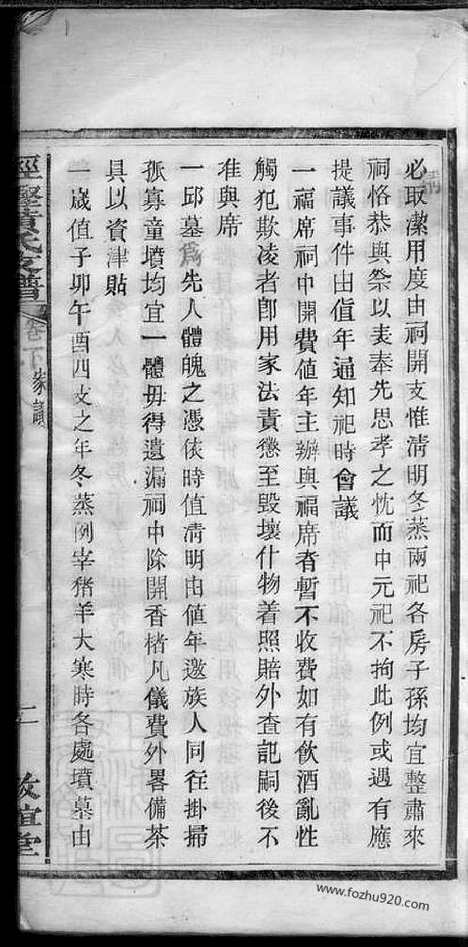 必取潔用度由祠開支惟清明冬蒸兩祀各房子孫均宜整肅來
祠恪恭與祭以表奉先思孝之忱而中元祀不拘此例或遇有應
提議事件由值年通知祀時會議
一福席祠中開費值年主辦與福席者暫不收費如有飲酒亂性
觸犯欺凌者卽用家法責懲至毀壞什物着照賠外查記嗣後不
准與席
一邱墓爲先人體魄之憑依時值清明由值年邀族人同往掛掃
孤寡童墳均宜一體毋得遺漏祠中除開香楮凡儀費外畧備茶
具以資津貼
一歲值子卯午酉四支之年冬蒸例宰猪羊大寒時各處墳墓由
黃氏支譜
卷下
家議
二
敦誼堂
www.fozhu920.com